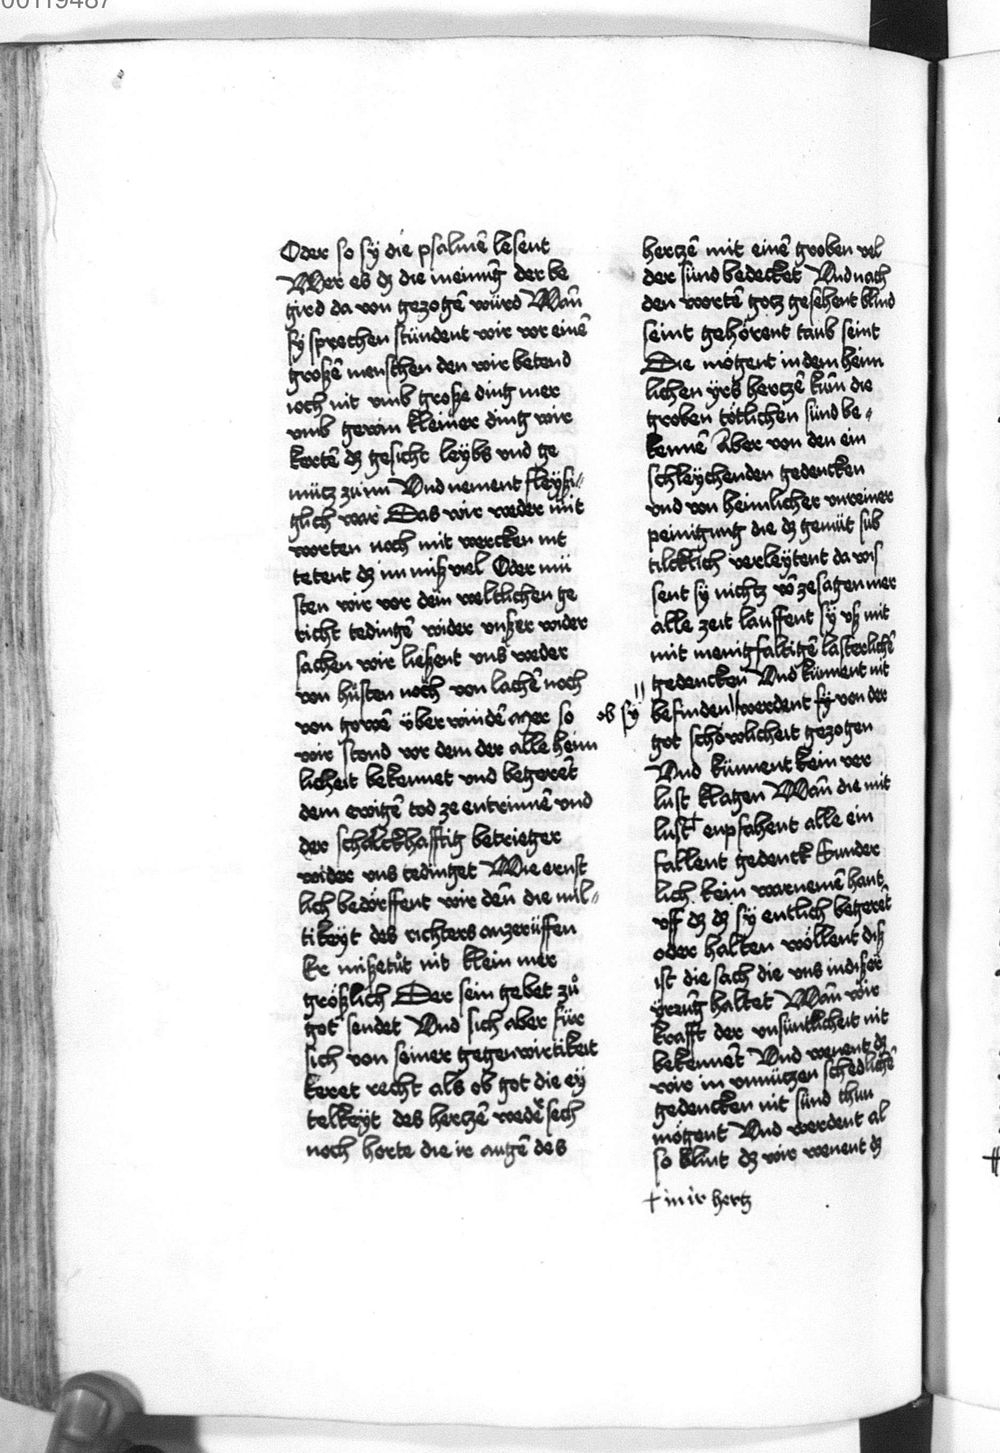 00119487
Oder so sÿ die psalmē lesent
Wer es dz die meinūg der be
gird da von gezogē würd Wañ
sÿ sprechen stündent wir vor einē
großē menschen den wir betend
ioch nit vmb große ding mer
vmb gewin kleiner ding wir
kertē dz gesicht leÿbs vnd ge
mütz zu im Vnd nement fleÿßi⸗
glich war Das wir weder mit
worten noch mit wercken nit
tetent dz im miß viel Oder mü
sten wir vor dem weltlichen ge
richt tedingē wider vnßer wider
sachen wir ließent vns weder
von hüsten noch von lachē noch
von gowē überwindē Mer so
wir stond vor dem der alle heim
licheit bekennet vnd begerēt
dem ewigē tod ze entrinnē vnd
der schalckhafftig betrieger
wider vns tedinget Wie ernst
lich bedörffent wir deñ die mil⸗
tikeÿt des richters anzerüffen
Er mißetůt nit klein mer
größlich Der sein gebet zů
got sendet Vnd sich aber für
sich von seiner gegenwirtikeit
keret recht als ob got die eÿ
telkeÿt des hertzē wedē sech
noch horte die ir augē des
hertzē mit einē groben vel
der sünd bedecket Vnd nach
den wortē gotz gesehent blind
seint gehörent taub seint
Die mögent in dem heim
lichen ÿrs hertzē kūm die
groben tötlichen sünd be⸗
kennē Aber von den ein
schleÿchenden gedencken
vnd von heimlicher vnreiner
peinigung die dz gemüt sub
tilcklich verleÿtent da wis
sent sÿ nichtz vō ze sagen mer
alle zeit lauffent sÿ vß mit
mit menigfaltigē lasterlichē
gedencken Vnd künnent nit
ob sÿ
befinden werdent sÿ von der
got schöwlicheit gezogen
Vnd künnent kein ver
lust klagen Wañ die mit
lust† enpfahent alle ein
fallent gedenck Sunder
lich kein warnemē hant
vff dz dz sÿ entlich begerēt
oder halten wöllent diß
ist die sach die vns in dißer
ÿrrūg haltet Wañ wir
krafft der vnsüntlicheit nit
bekennēt Vnd wenent dz
wir in vnnützen schedlichē
gedencken nit sünd thun
mögent Vnd werdent al
so blint dz wir wenent dz
† in ir hertz